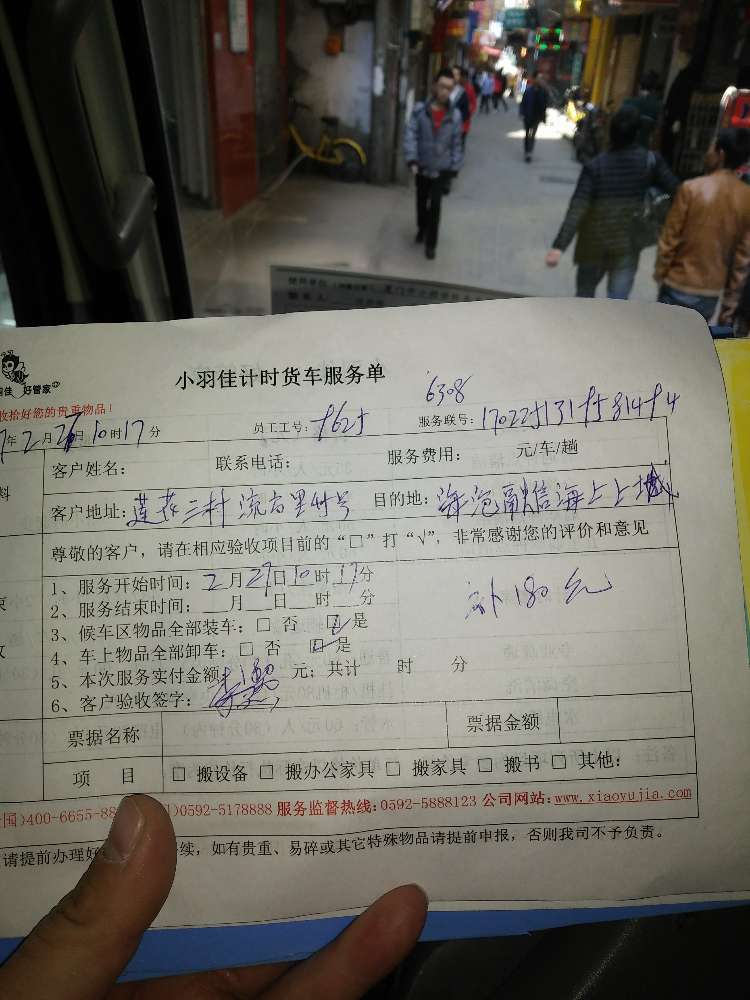 好管家
小羽佳计时货车服务单
收拾好您的贵重物品！
6308
年2月27日10时17分 员工工号： 服务联号：
客户姓名： 联系电话： 服务费用： 元/车/趟
客户地址：莲花三村 目的地：海沧融信海上城
尊敬的客户，请在相应验收项目前的“□”打“√”，非常感谢您的评价和意见
1、服务开始时间：2月27日10时17分
2、服务结束时间： 月 日 时 分
补180元
3、候车区物品全部装车：□ 否 □ 是
4、车上物品全部卸车：□ 否 □ 是
5、本次服务实付金额 元；共计 时 分
6、客户验收签字：
票据名称 票据金额
项 目 □ 搬设备 □ 搬办公家具 □ 搬家具 □ 搬书 □ 其他：
国)400-6655-88 )0592-5178888 服务监督热线:0592-5888123 公司网站:www.xiaoyujia.com
请提前办理 续，如有贵重、易碎或其它特殊物品请提前申报，否则我司不予负责。